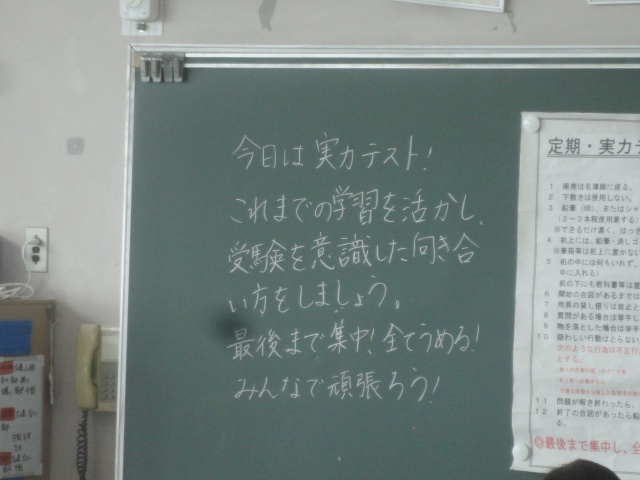 今日は実力テスト!
これまでの学習を活かし、
受験を意識した向き合
い方をしましょう。
最後まで集中!全てうめる!
みんなで頑張ろう!
定期・実力テ
1 座席は名簿順に座る。
2 下敷きは使用しない。
3 鉛筆（HB）、またはシャ
（2－3本程度用意する）
※できるだけ濃く、はっき
4 机上には、鉛筆・消しゴ
※筆箱等は机上に置かない
5 机の中には何もいれず、
中に入れる）
机の下にも教科書等は置
6 開始の合図があるまでは
7 用具の貸し借りは禁止と
8 質問がある場合は挙手し
9 物を落とした場合は挙手
10 疑わしい行動はとらない
次のような行為は不正行
とする。
11 問題が解き終わったら、
12 終了の合図があったら鉛
◎最後まで集中し、全